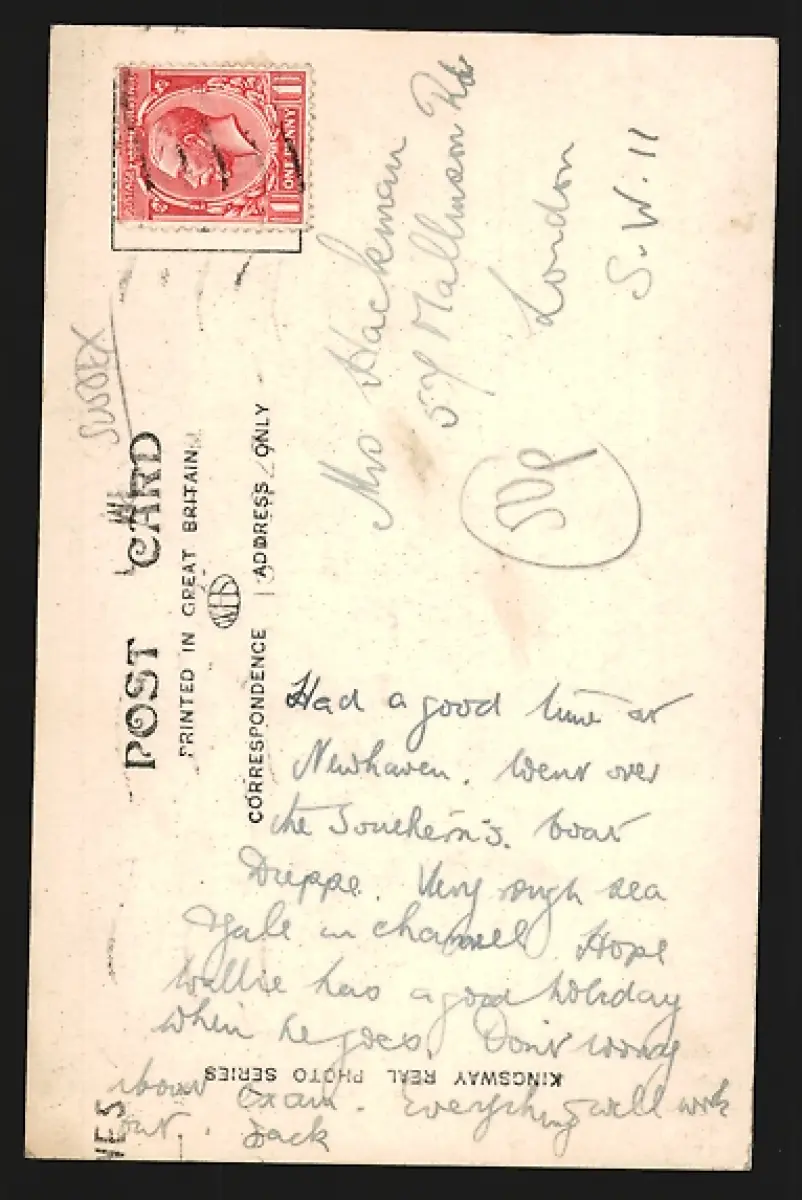 POSTAGE
ONE PENNY
SUSSEX
POST CARD
PRINTED IN GREAT BRITAIN
WHS
CORRESPONDENCE
ADDRESS ONLY
Mrs Hackman
57 Mallinson Rd
London
S.W.11
50p
Had a good time at
Newhaven. Went over
the Southern's. boat
Dieppe. Very rough sea
Gale in channel Hope
Wallie has a good holiday
when he goes. Don't worry
about exam. Everything will work
out. Jack
KINGSWAY REAL PHOTO SERIES